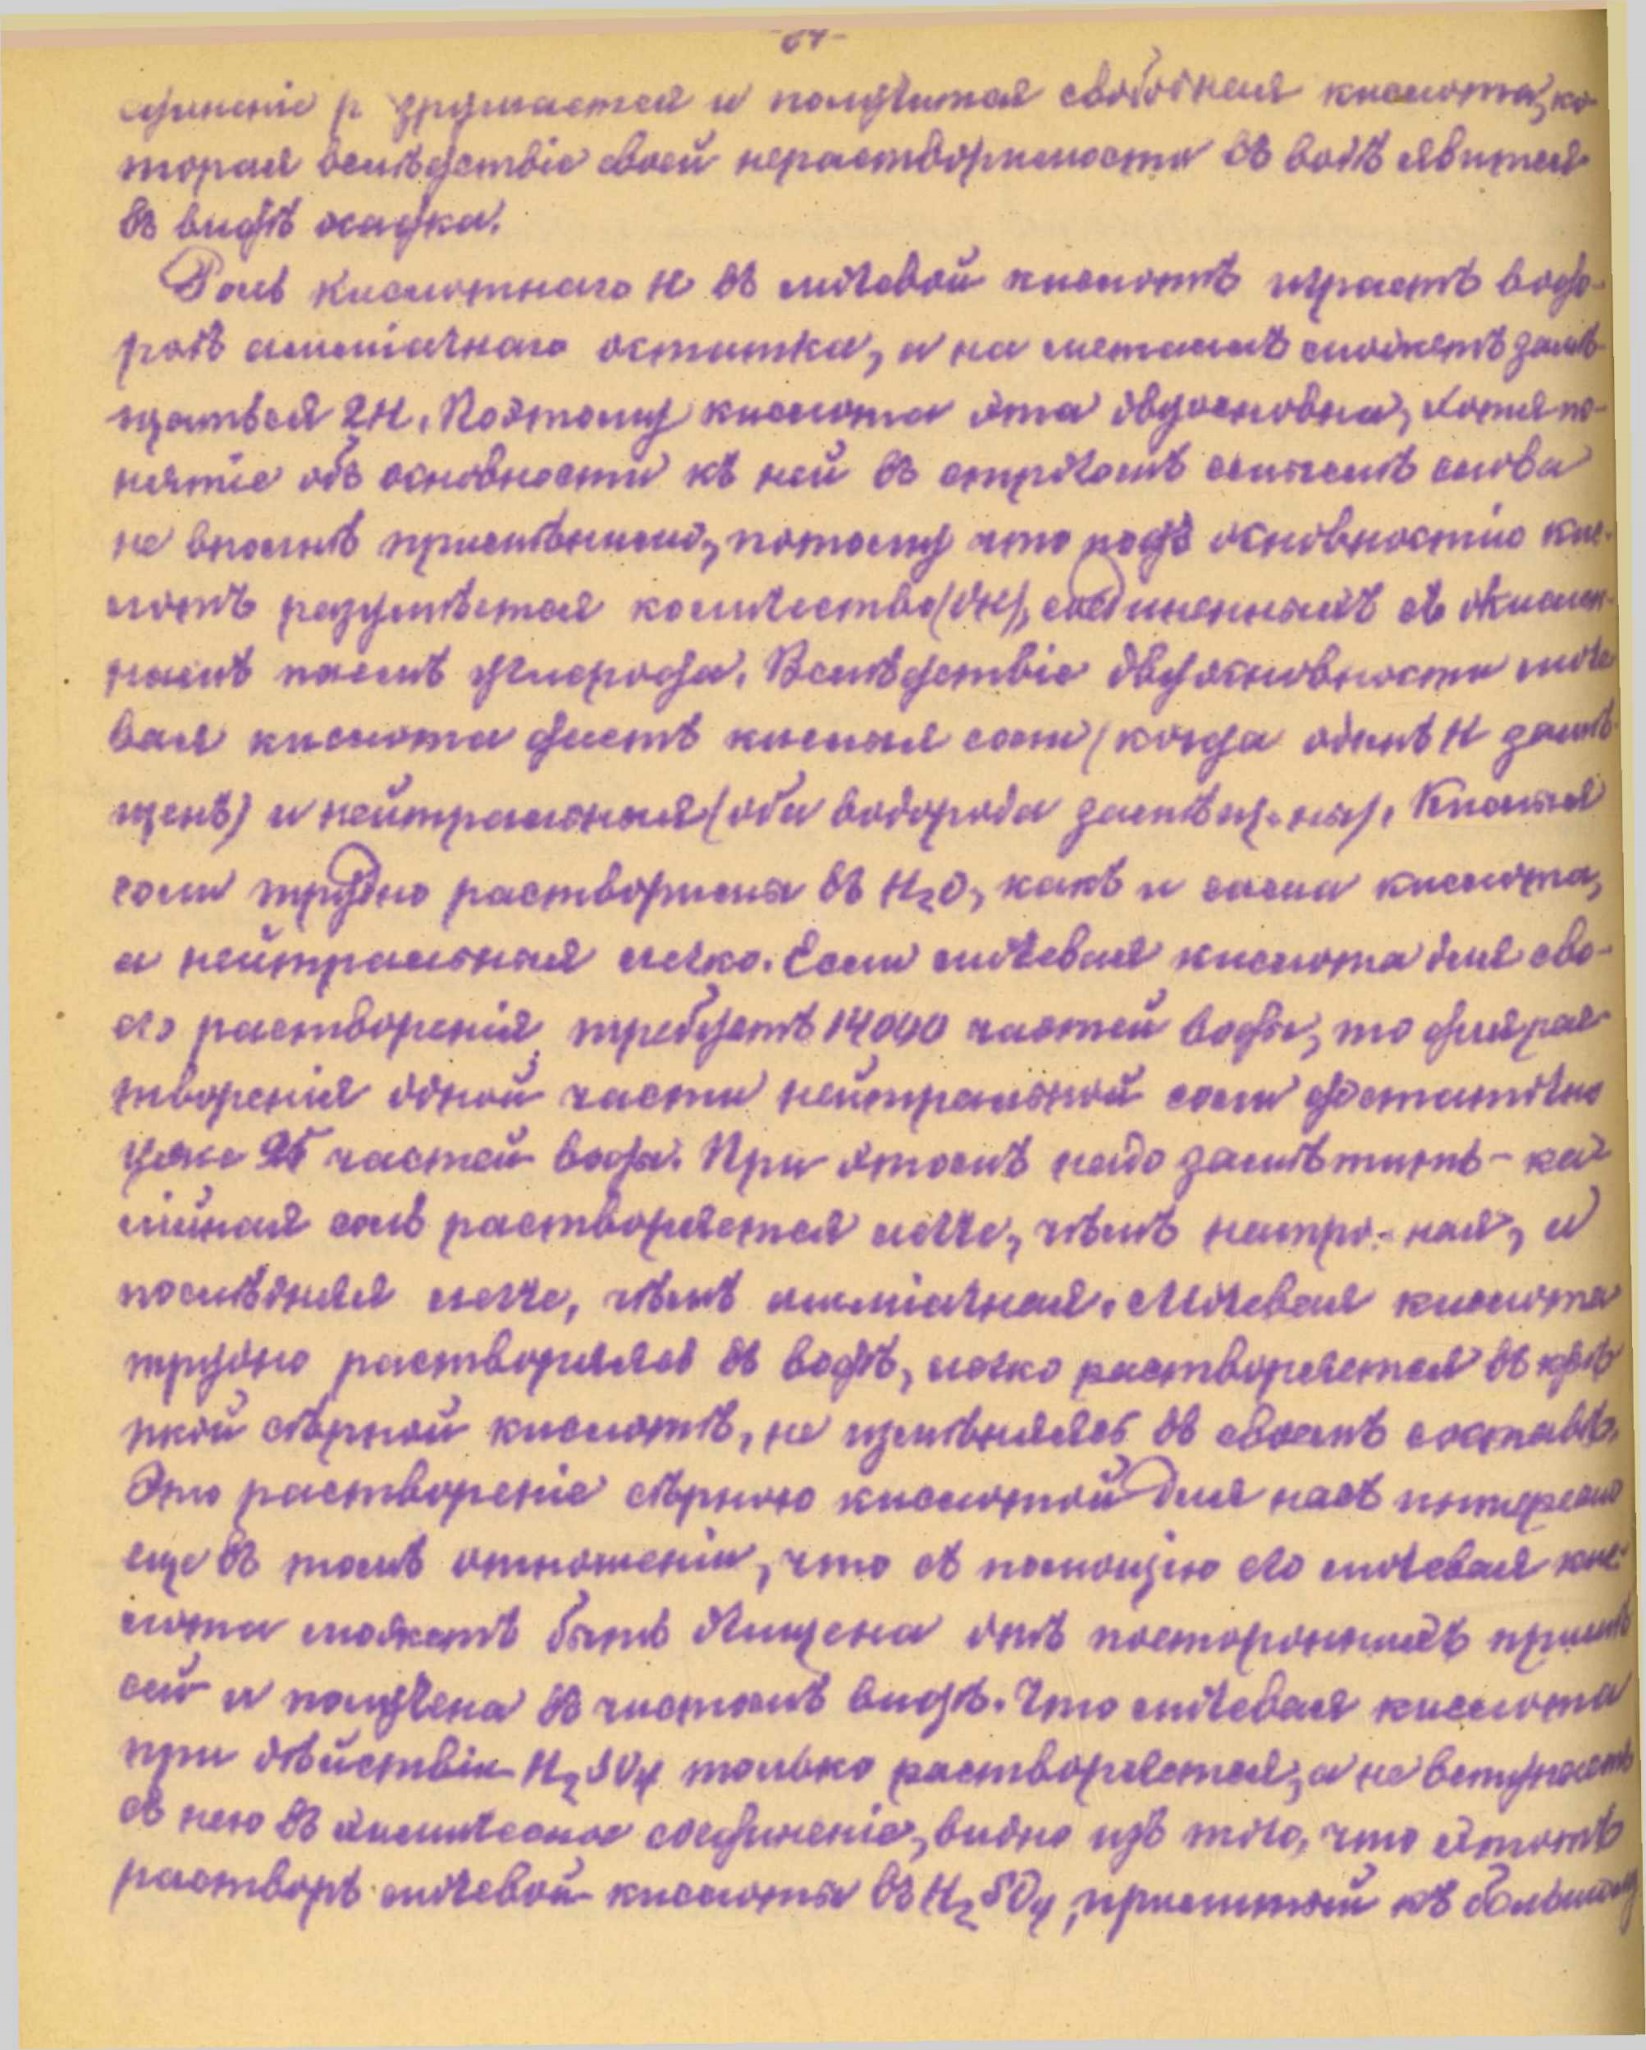 -64-
единеніе р зрушается и получится свободная кислота, ко-
торая вслѣдствіе своей нерастворимости въ водѣ явится
въ видѣ осадка.
Роль кислотнаго H въ мочевой кислотѣ играетъ водо-
родъ амміачнаго остатка, а на металлъ можетъ замѣ-
щаться 2H. Поэтому кислота эта двуосновна, хотя по-
нятіе объ основности къ ней въ строгомъ смыслѣ слова
не вполнѣ примѣнимо, потому что подъ основностію кис-
лотъ разумѣется количество (OH), соединенныхъ съ окислен-
нымъ паемъ углерода. Вслѣдствіе двуосновности моче
вая кислота даетъ кислыя соли (когда одинъ H замѣ-
щенъ) и нейтральныя (оба водорода замѣщены). Кислыя
соли трудно растворимы въ H₂O, какъ и сама кислота,
а нейтральныя легко. Если мочевая кислота для сво-
его растворенія требуетъ 14000 частей воды, то для рас-
творенія одной части нейтральной соли достаточно
уже 35 частей воды. При этомъ надо замѣтить – ка-
лійная соль растворяется легче, чѣмъ натро-ная, и
послѣдняя легче, чѣмъ амміачная. Мочевая кислота
трудно растворяясь въ водѣ, легко растворяется въ крѣ-
пкой сѣрной кислотѣ, не измѣняясь въ своемъ составѣ.
Это раствореніе сѣрною кислотой для насъ интересно
еще въ томъ отношеніи, что съ помощію его мочевая кис-
лота можетъ быть очищена отъ постороннихъ примѣ
сей и получена въ чистомъ видѣ. Что мочевая кислота
при дѣйствіи H₂SO₄ только растворяется, а не вступаетъ
съ нею въ химическое соединеніе, видно изъ того, что этотъ
растворъ мочевой кислоты въ H₂SO₄, прилитый къ большому